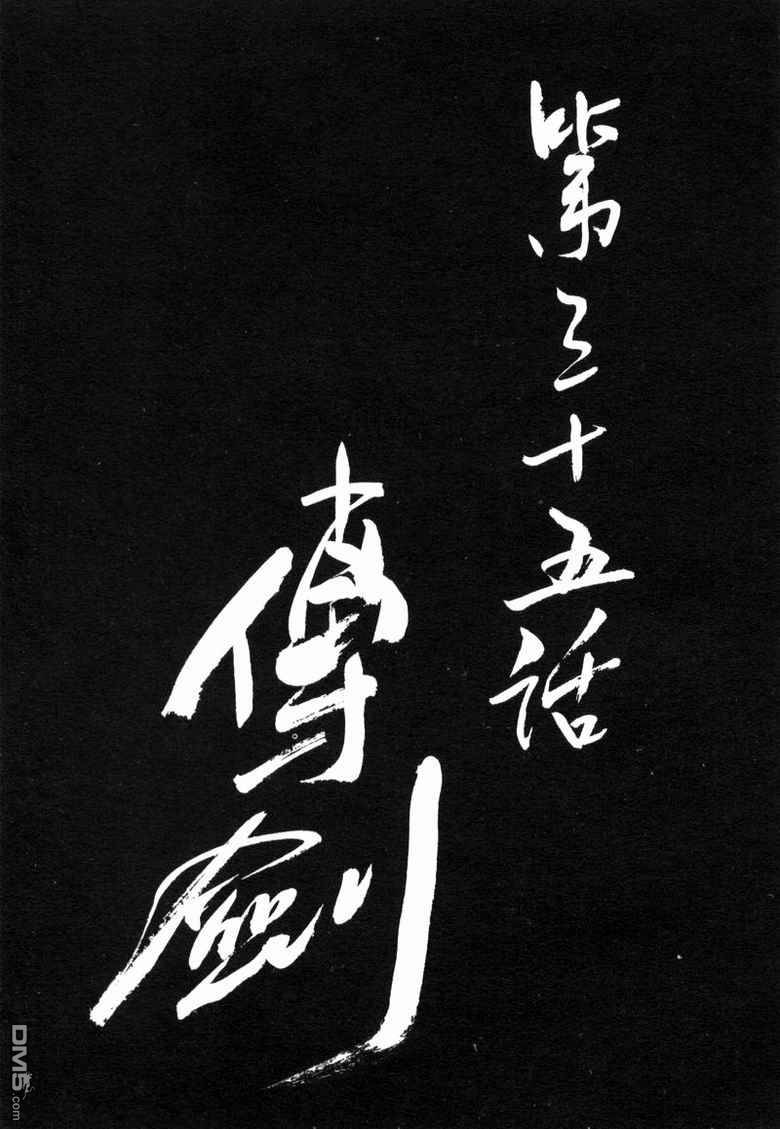 第三十五話
傳劍
DM5.com